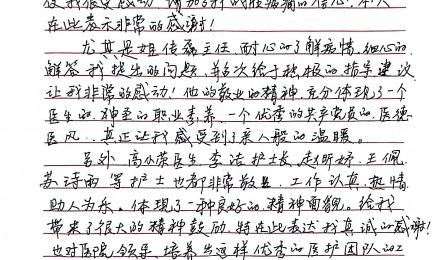 在此表示非常的感谢!
尤其是姐传磊主任,耐心的了解病情,细心的
解答我提出的问题,并多次给于积极的指导建议,
让我非常的感动!他的敬业的精神,充分体现了一个
医生的,独至的职业素养,一个优秀的共产党员的,医德
医风,真正让我感受到了亲人般的温暖。
另外,高小荣医生,李洁护士长,赵昕娇,王佩,
苏诗雨等护士也都非常敬业,工作认真,热情,
助人为乐。体现了一种良好的精神面貌。给我
带来了很大的精神鼓励,特在此表达我真诚的感谢!
也对医院领导,培养出这样优秀的医护团队的工